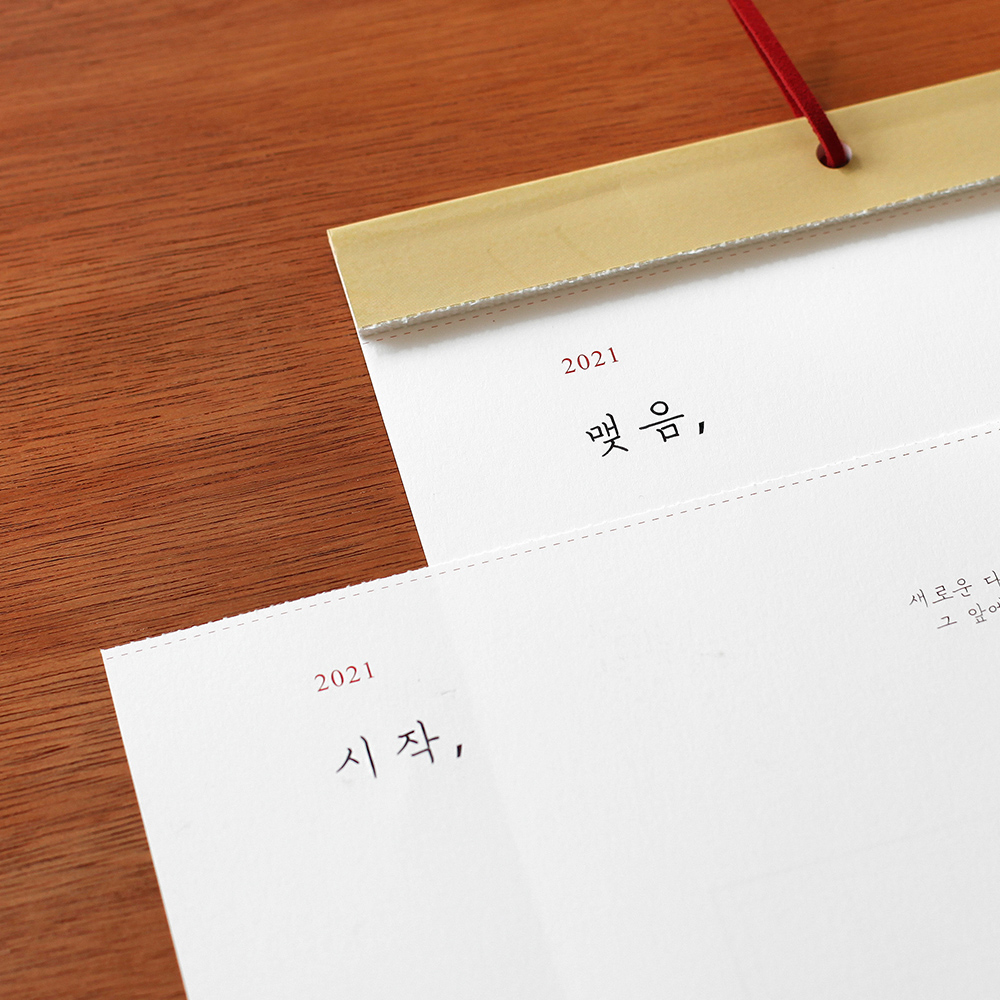 2021
맺음,
새로운
그 앞에
2021
시작,